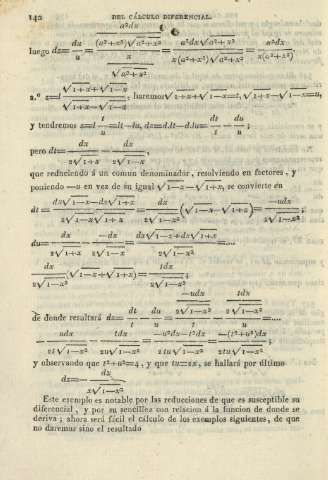 142 DEL CÁLCULO DIFERENCIAL.
luego dz = du/u = (a²dx / ((a²+x²)√a²+x²)) / (x / √a²+x²) = a²dx√a²+x² / (x(a²+x²)√a²+x²) = a²dx / (x(a²+x²))
2.º z=l (√1+x+√1-x) / (√1+x-√1-x), haremos √1+x+√1-x=t, √1+x-√1-x=u,
y tendremos z=l t/u =lt-lu, dz=d.lt-d.lu= dt/t - du/u ;
pero dt= dx / 2√1+x - dx / 2√1-x ,
que reduciendo á un comun denominador, resolviendo en factores, y
poniendo -u en vez de su igual √1-x-√1+x, se convierte en
dt = (dx√1-x-dx√1+x) / (2√1-x√1+x) = dx / 2√1-x² (√1-x-√1+x) = -udx / 2√1-x² ;
du= dx / 2√1+x - -dx / 2√1-x = (dx√1-x+dx√1+x) / 2√1-x² =....
dx / 2√1-x² (√1-x+√1+x)= tdx / 2√1-x² ;
de donde resultará dz= dt/t - du/u = (-udx / 2√1-x²) / t - (tdx / 2√1-x²) / u =
- udx / 2t√1-x² - tdx / 2u√1-x² = (-u²dx-t²dx) / 2tu√1-x² = -(t²+u²)dx / 2tu√1-x² ;
y observando que t²+u²=4, y que tu=2x, se hallará por último
dz=- dx / x√1-x²
Este exemplo es notable por las reducciones de que es susceptible su
diferencial, y por su sencillez con relacion á la funcion de donde se
deriva; ahora será fácil el cálculo de los exemplos siguientes, de que
no daremos sino el resultado